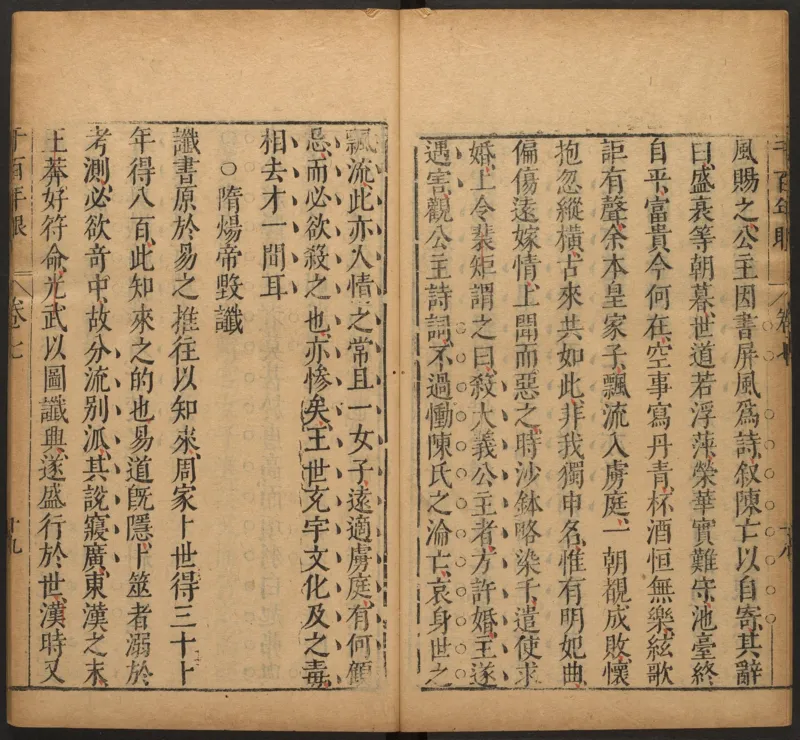 千百年眼 卷七 十八
風賜之公主因書屏風爲詩叙陳亡以自寄其辭
曰盛衰等朝暮世道若浮萍榮華實難守池臺終
自平富貴今何在空事寫丹青杯酒恒無樂絃歌
詎有聲余本皇家子飄流入虜庭一朝覩成敗懷
抱忽縱橫古來共如此非我獨申名惟有明妃曲
偏傷遠嫁情上聞而惡之時沙鉢略染干遣使求
婚上令裴矩謂之曰殺大義公主者方許婚主遂
遇害觀公主詩詞不過慟陳氏之淪亡哀身世之
飄流此亦人情之常且一女子遠適虜庭有何顧
忌而必欲殺之也亦慘矣王世充宇文化及之毒
相去才一間耳
○隋煬帝毀讖
讖書原於易之推往以知來周家卜世得三十卜
年得八百此知來之的也易道旣隱卜筮者溺於
考測必欲奇中故分流別派其說寖廣東漢之末
王莽好符命光武以圖讖興遂盛行於世漢時又
千百年眼 卷七 十九